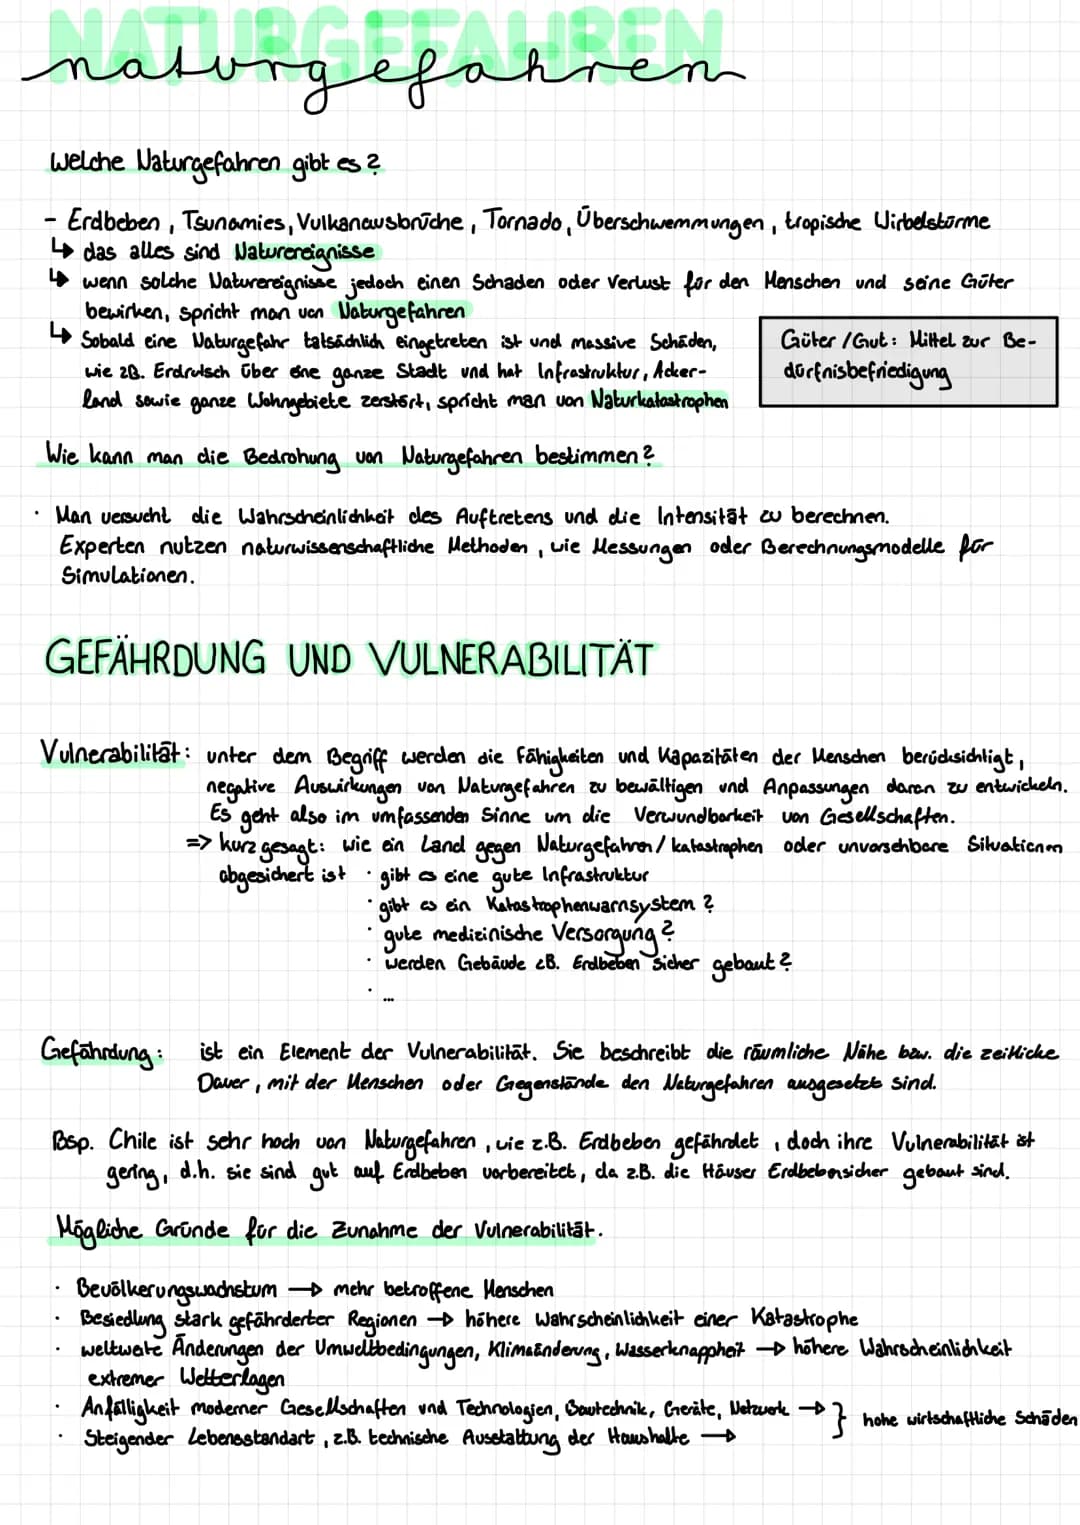 NATURGEFAHREN
naturgefahren
Welche Naturgefahren gibt es?
- Erdbeben, Tsunamies, Vulkanausbrüche, Tornado, Überschwemmungen, tropische Wirbelstürme
↳ das alles sind Naturereignisse
↳ wenn solche Naturereignisse jedoch einen Schaden oder Verlust für den Menschen und seine Güter
bewirken, spricht man von Naturgefahren
↳ Sobald eine Naturgefahr tatsächlich eingetreten ist und massive Schäden,
wie zB. Erdrutsch über eine ganze Stadt und hat Infrastruktur, Acker-
land sowie ganze Wohngebiete zerstört, spricht man von Naturkatastrophen
Güter /Gut: Mittel zur Be-
dürfnisbefriedigung
Wie kann man die Bedrohung von Naturgefahren bestimmen?
· Man versucht die Wahrscheinlichkeit des Auftretens und die Intensität zu berechnen.
Experten nutzen naturwissenschaftliche Methoden, wie Messungen oder Berechnungsmodelle für
Simulationen.
GEFÄHRDUNG UND VULNERABILITÄT
Vulnerabilität: unter dem Begriff werden die Fähigkeiten und Kapazitäten der Menschen berücksichtigt,
negative Auswirkungen von Naturgefahren zu bewältigen und Anpassungen daran zu entwickeln.
Es geht also im umfassenden Sinne um die Verwundbarkeit von Gesellschaften.
=> kurz gesagt: wie ein Land gegen Naturgefahren/katastrophen oder unvorsehbare Situationen
abgesichert ist · gibt es eine gute Infrastruktur
· gibt es ein Katastrophenwarnsystem?
· gute medizinische Versorgung?
· werden Gebäude zB. Erdbeben sicher gebaut?
· ...
Gefährdung: ist ein Element der Vulnerabilität. Sie beschreibt die räumliche Nähe bzw. die zeitliche
Dauer, mit der Menschen oder Gegenstände den Naturgefahren ausgesetzt sind.
Bsp. Chile ist sehr hoch von Naturgefahren, wie z.B. Erdbeben gefährdet, doch ihre Vulnerabilität ist
gering, d.h. sie sind gut auf Erdbeben vorbereitet, da z.B. die Häuser Erdbebensicher gebaut sind.
Mögliche Gründe für die Zunahme der Vulnerabilität.
· Bevölkerungswachstum → mehr betroffene Menschen
· Besiedlung stark gefährderter Regionen → höhere Wahrscheinlichkeit einer Katastrophe
· weltweite Änderungen der Umweltbedingungen, Klimaänderung, Wasserknappheit → höhere Wahrscheinlichkeit
extremer Wetterlagen
· Anfälligkeit moderner Gesellschaften und Technologien, Bautechnik, Geräte, Netzwerk → } hohe wirtschaftliche Schäden
· Steigender Lebensstandart, z.B. technische Ausstattung der Haushalte →